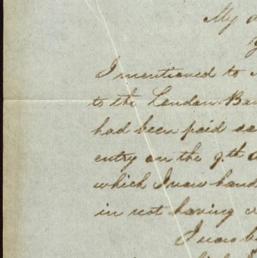 My
I mentioned to
to the London Ban
had been paid
entry on the 9th
which I now hand
in not having
I now b